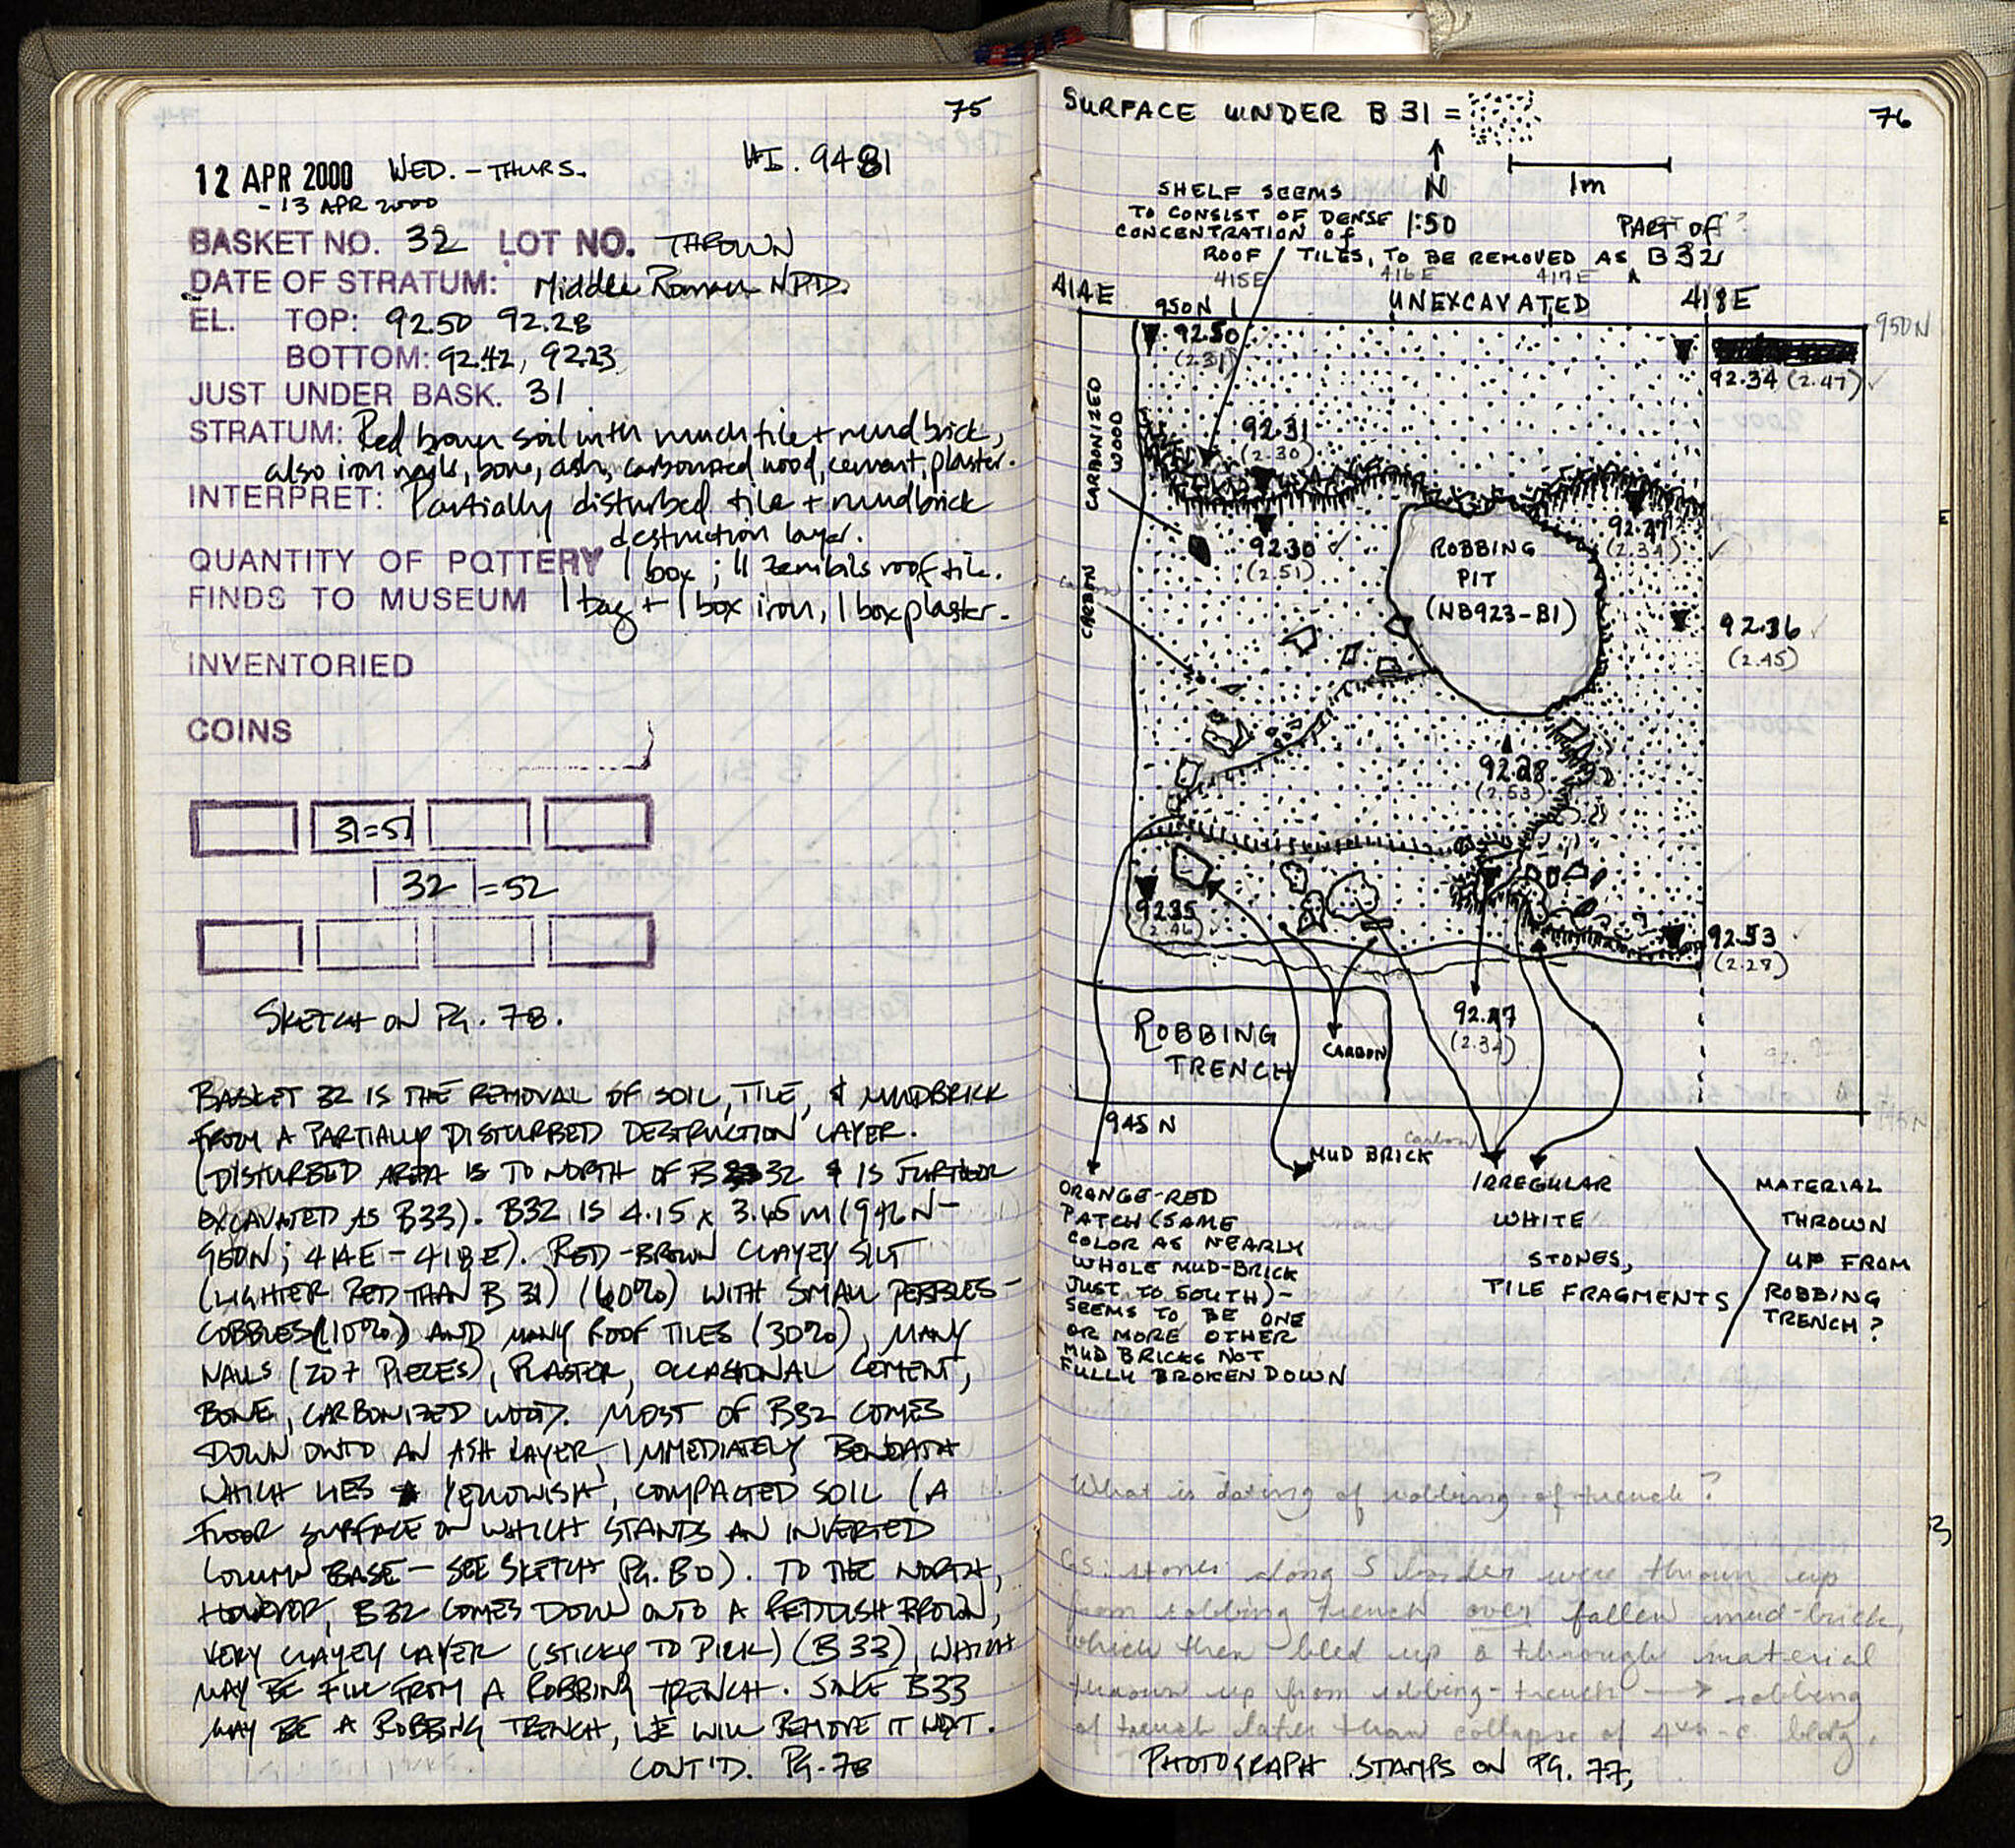 75
12 APR 2000 WED. - THURS. HI. 94.81
- 13 APR 2000
BASKET NO. 32 LOT NO. THROWN
DATE OF STRATUM: Middle Roman NPD.
EL. TOP: 92.50 92.28
BOTTOM: 92.42, 92.23
JUST UNDER BASK. 31
STRATUM: Red brown soil with much tile + mud brick,
also iron nails, bone, ash, carbonized wood, cement, plaster.
INTERPRET: Partially disturbed tile + mudbrick
destruction layer.
QUANTITY OF POTTERY 1 box; 11 zembils roof tile.
FINDS TO MUSEUM 1 bag + 1 box iron, 1 box plaster.
INVENTORIED
COINS
31=51
32 =52
SKETCH ON PG. 78.
BASKET 32 IS THE REMOVAL OF SOIL, TILE, & MUDBRICK
FROM A PARTIALLY DISTURBED DESTRUCTION LAYER.
(DISTURBED AREA IS TO NORTH OF B32 & IS FURTHER
EXCAVATED AS B33). B32 IS 4.15 x 3.45 m (946N-
950N; 414E-418E). RED-BROWN CLAYEY SILT
(LIGHTER RED THAN B 31) (60%) WITH SMALL PEBBLES-
COBBLES (10%) AND MANY ROOF TILES (30%), MANY
NAILS (207 PIECES), PLASTER, OCCASIONAL CEMENT,
BONE, CARBONIZED WOOD. MOST OF B32 COMES
DOWN ONTO AN ASH LAYER, IMMEDIATELY BENEATH
WHICH LIES YELLOWISH, COMPACTED SOIL (A
FLOOR SURFACE ON WHICH STANDS AN INVERTED
COLUMN BASE - SEE SKETCH PG. 80). TO THE NORTH,
HOWEVER, B32 COMES DOWN ONTO A REDDISH BROWN,
VERY CLAYEY LAYER (STICKY TO PICK) (B33), WHICH
MAY BE FILL FROM A ROBBING TRENCH. SINCE B33
MAY BE A ROBBING TRENCH, WE WILL REMOVE IT NEXT.
CONT'D. PG. 78
SURFACE UNDER B 31 =
76
N
1m
1:50
SHELF SEEMS
TO CONSIST OF DENSE
CONCENTRATION OF
ROOF TILES, TO BE REMOVED AS B32
PART OF?
415E 416E 417E
414E 950N UNEXCAVATED 418E
950N
92.50
(2.31)
92.34 (2.47)
CARBONIZED
WOOD
92.31
(2.30)
92.47
(2.34)
92.30
(2.51)
ROBBING
PIT
(NB923-B1)
CARBON
Carbon
92.36
(2.45)
92.28
(2.53)
92.35
(2.46)
92.53
(2.28)
ROBBING
TRENCH
CARBON
92.47
(2.34)
945 N
MUD BRICK
Carbon
ORANGE-RED
PATCH (SAME
COLOR AS NEARLY
WHOLE MUD-BRICK
JUST TO SOUTH)-
SEEMS TO BE ONE
OR MORE OTHER
MUD BRICKS NOT
FULLY BROKEN DOWN
IRREGULAR
WHITE
STONES,
TILE FRAGMENTS
MATERIAL
THROWN
UP FROM
ROBBING
TRENCH?
What is dating of robbing of trench?
GS: stones along S border were thrown up
from robbing trench over fallen mud-brick,
which then bled up & through material
thrown up from robbing-trench → robbing
of trench later than collapse of 4th-c. bldg.
PHOTOGRAPH STAMPS ON PG. 77,